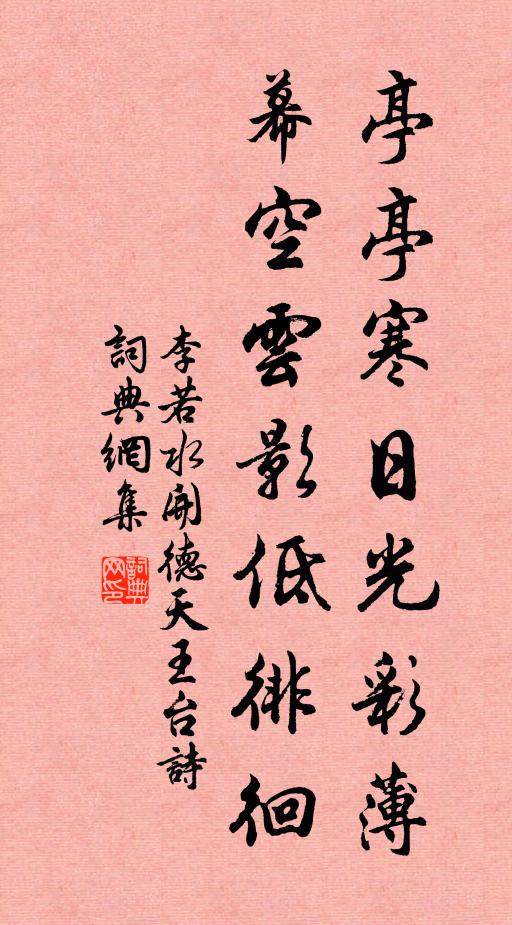 亭亭寒日光彩薄
幕空雲影低徘徊
李若水開德天王台詩
詞典網集
詞典網印